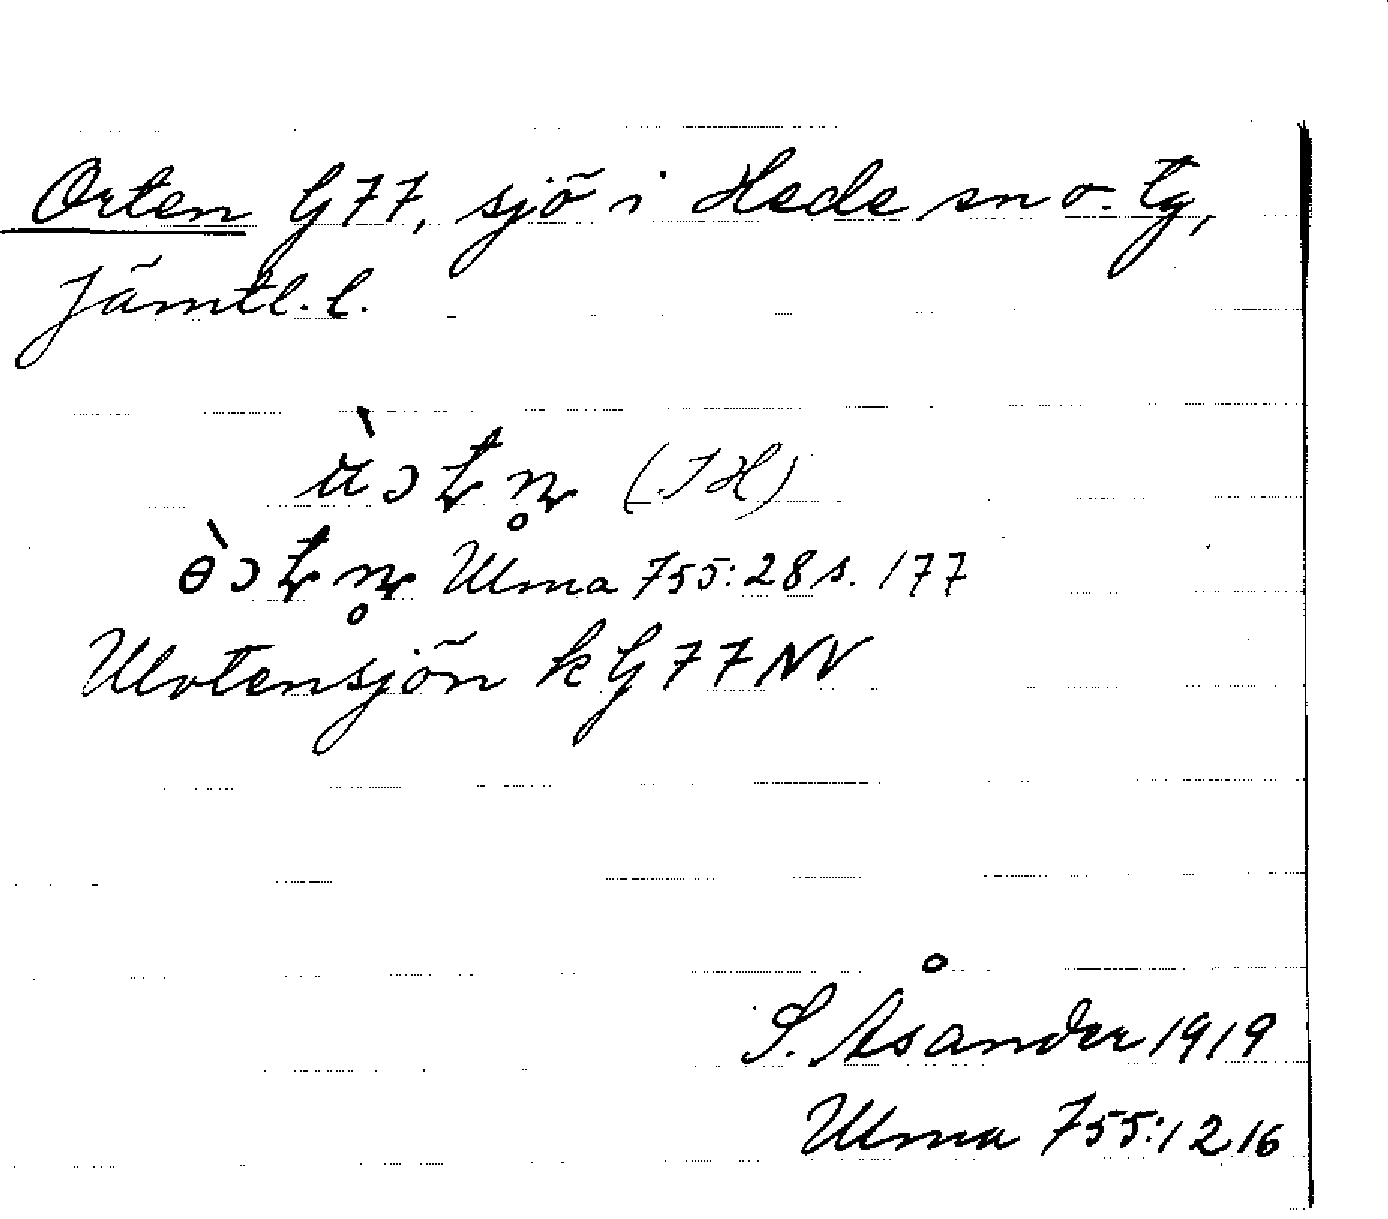 Orten G77, sjö i Hede sn o. tg,
Jämtl. l.
(JH)
Ulma 755:28 s. 177
Ulvtensjön k G77NV
S. Åsander 1919
Ulma 755:1216